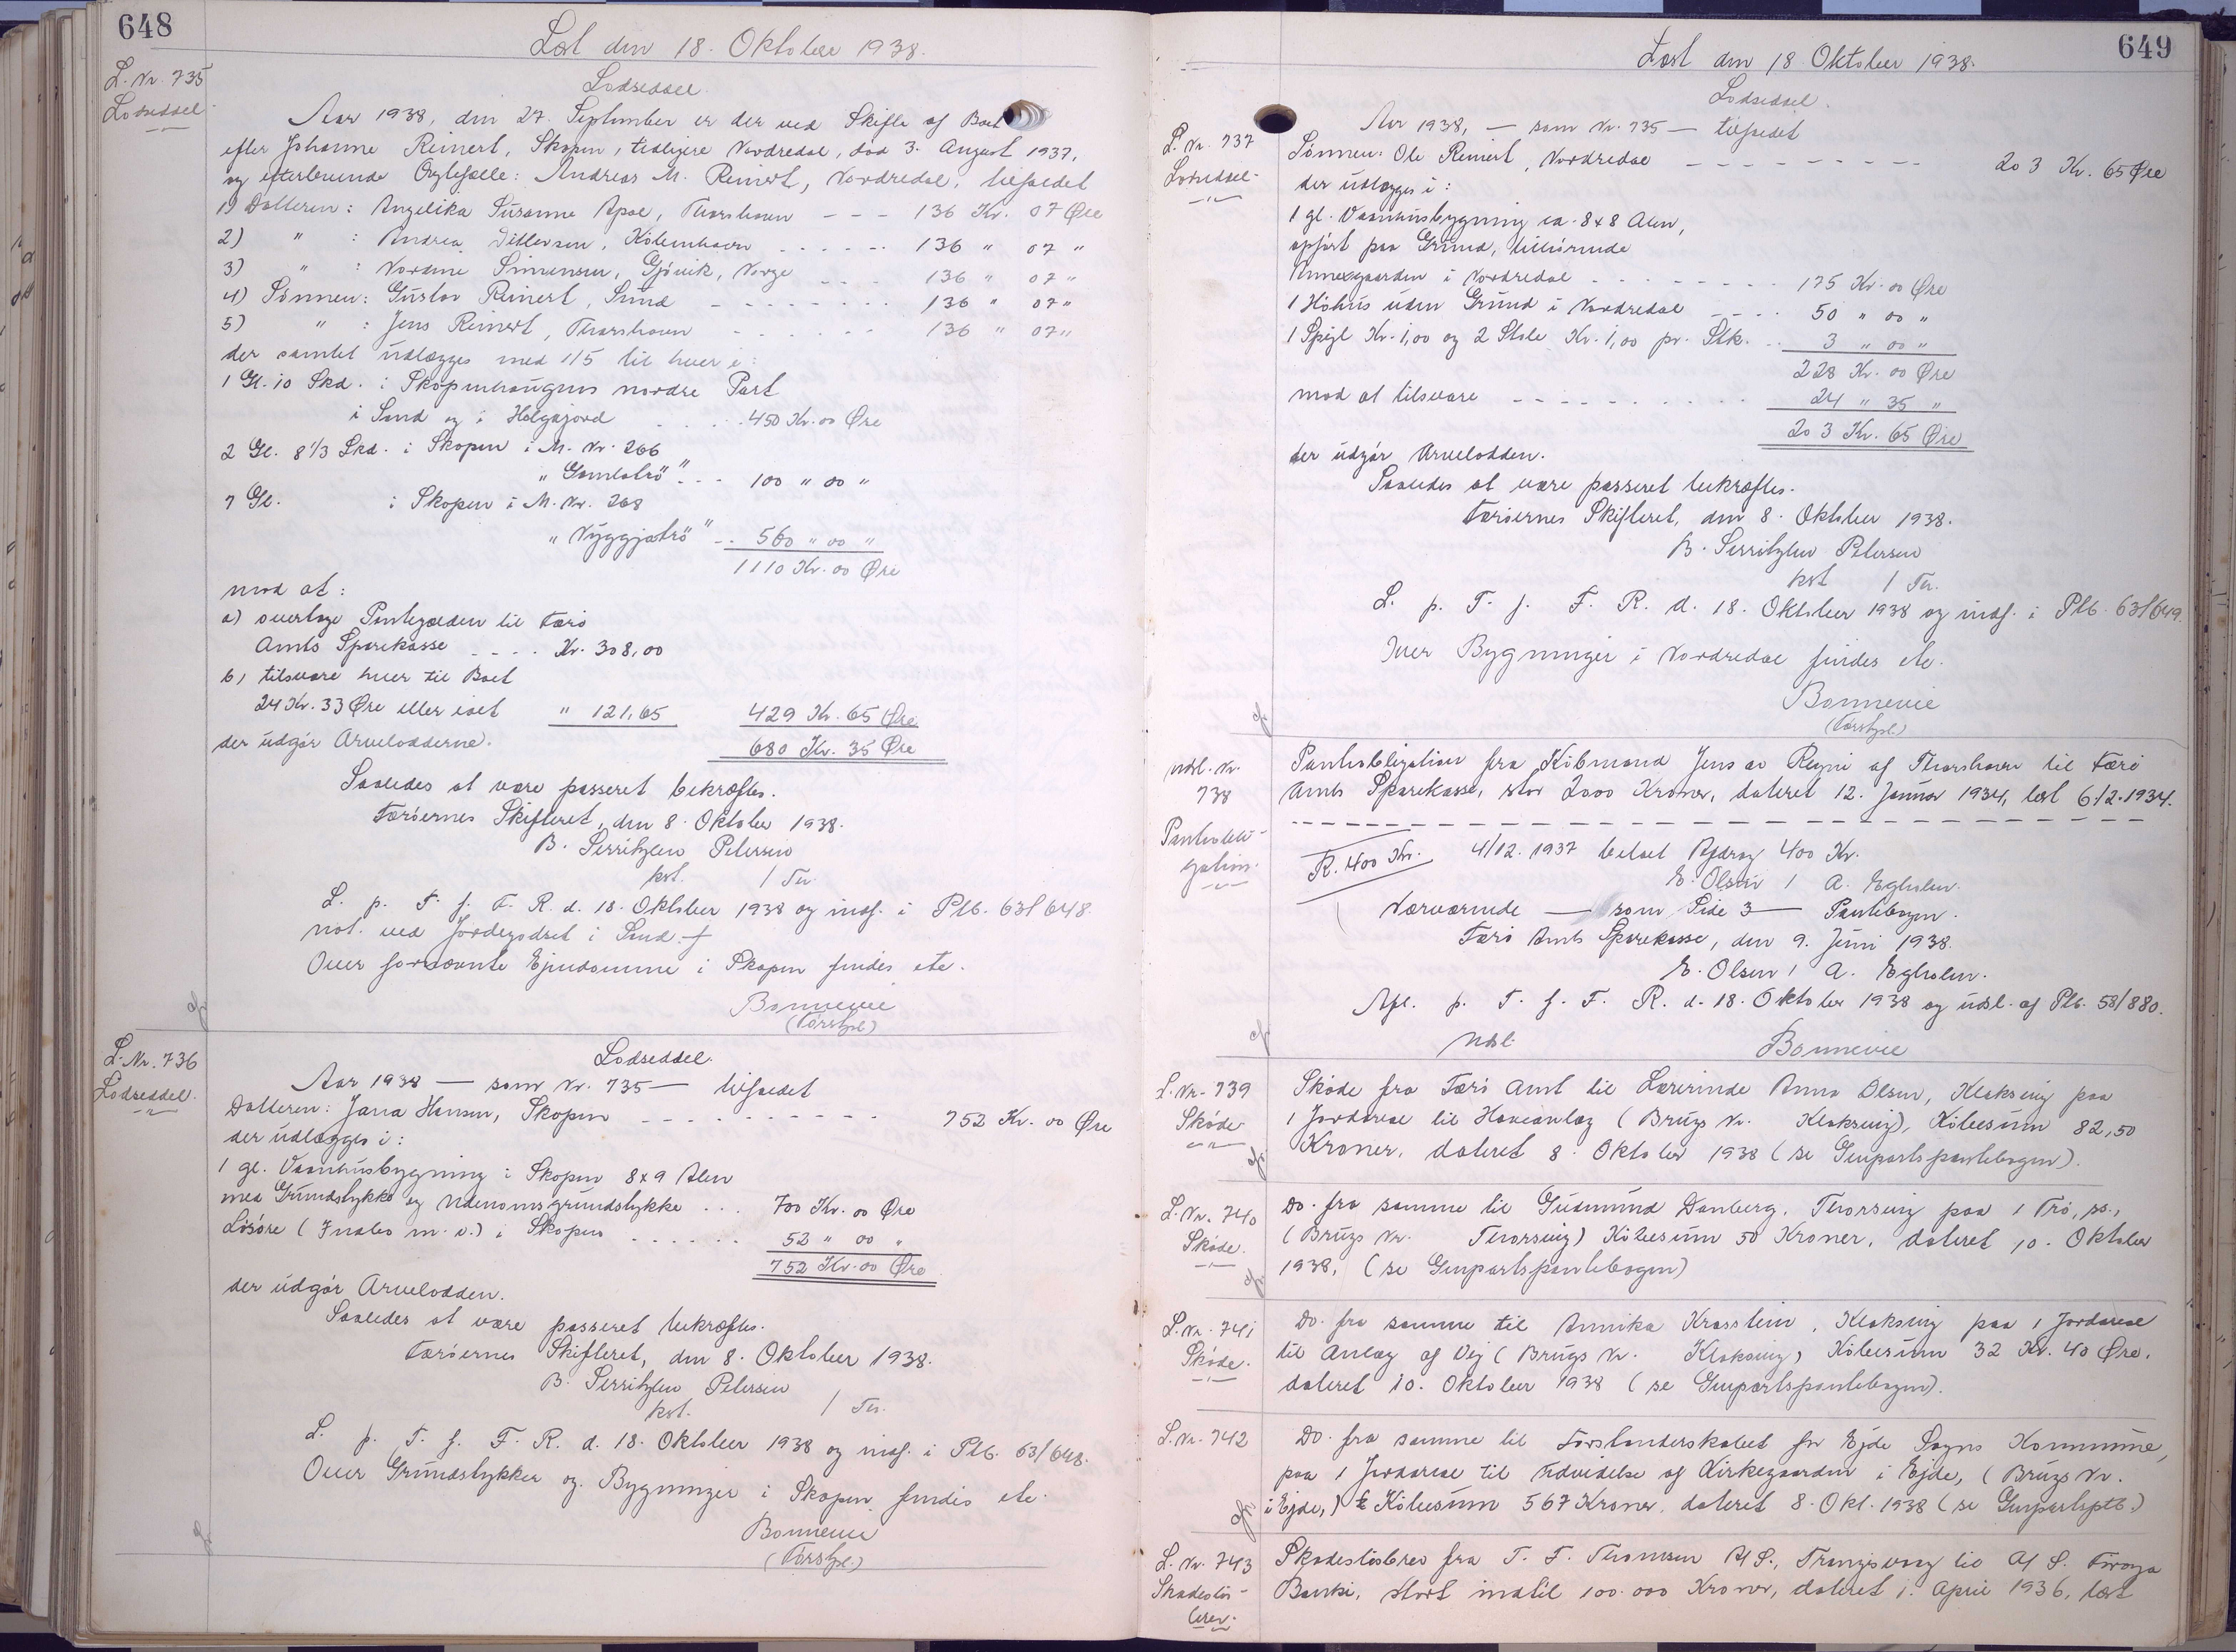 648
Læst den 18. Oktober 1938.
L. Nr. 735
Lodseddel
Lodseddel.
Aar 1938, den 27. September er der ved Skifte af Boet
efter Johanne Reinert, Skopun, tidligere Nordredal, død 3. August 1937,
og efterlevende Ægtefælle: Andreas M. Reinert, Nordredal, tilfaldet
1) Datteren: Angelika Susanne Apol, Thorshavn - - - 136 Kr. 07 Øre
2) " : Andrea Ditlevsen, København - - - - - - 136 " 07 "
3) " : Nordine Simonsen, Gjövik, Norge - - - 136 " 07 "
4) Sønnen: Gustav Reinert, Sund - - - - - - - - 136 " 07 "
5) " : Jens Reinert, Thorshavn - - - - - - 136 " 07 "
der samlet udlægges med 1/5 til hver i:
1 Gl. 10 Skd. i Skopunhaugens nordre Part
i Sand og i Helgajord . . . . 450 Kr. 00 Øre
2 Gl. 8 1/3 Skd. i Skopun i M. Nr. 266
" Gamlatrö" - - - 100 " 00 "
7 Gl. i Skopun i M. Nr. 268
" Nýggjatrö" - - 560 " 00 "
1110 Kr. 00 Øre
mod at:
a) overtage Pantegælden til Færø
Amts Sparekasse - - - - Kr. 308,00
b) tilsvare hver til Boet
24 Kr. 33 Øre eller ialt " 121,65 429 Kr. 65 Øre
der udgør Arvelodderne. 680 Kr. 35 Øre
Saaledes at være passeret bekræftes.
Færøernes Skifteret, den 8. Oktober 1938.
B. Serritzlew Petersen
kst. / Tr.
L. p. T. f. F. R. d. 18. Oktober 1938 og indf. i Ptb. 63/648.
not. ved Jordegodset i Sand.
Over fornævnte Ejendomme i Skopun findes etc.
Bonnevie
(Forstpl.)
L. Nr. 736
Lodseddel.
Lodseddel.
Aar 1938 — som Nr. 735 — tilfaldet
Datteren: Jana Hansen, Skopun - - - - - - - - - - 752 Kr. 00 Øre
der udlægges i:
1 gl. Vaanhusbygning i Skopun 8x9 Alen
med Grundstykke og Udenomsgrundstykke . . . 700 Kr. 00 Øre
Løsøre (Indbo m. v.) i Skopun . . . . . . 52 " 00 "
752 Kr. 00 Øre
der udgør Arvelodden.
Saaledes at være passeret bekræftes.
Færøernes Skifteret, den 8. Oktober 1938.
B. Serritzlew Petersen
kst. / Tr.
L. p. T. f. F. R. d. 18. Oktober 1938 og indf. i Ptb. 63/648.
Over Grundstykker og Bygninger i Skopun findes etc.
Bonnevie
(Forstpl.)
649
Læst den 18. Oktober 1938.
L. Nr. 737
Lodseddel.
Lodseddel.
Aar 1938, — som Nr. 735 — tilfaldet
Sønnen: Ole Reinert, Nordredal - - - - - - - - - 203 Kr. 65 Øre
der udlægges i:
1 gl. Vaanhusbygning ca. 8x8 Alen,
opført paa Grund, tilhørende
Annexgaarden i Nordredal - - - - - - - - - 175 Kr. 00 Øre
1 Høhus uden Grund i Nordredal - - - - 50 " 00 "
1 Spejl Kr. 1,00 og 2 Stole Kr. 1,00 pr. Stk. . . 3 " 00 "
228 Kr. 00 Øre
mod at tilsvare - - - - - . . . . . 24 " 35 "
203 Kr. 65 Øre
der udgør Arvelodden.
Saaledes at være passeret bekræftes.
Færøernes Skifteret, den 8. Oktober 1938.
B. Serritzlew Petersen
kst / Tr.
L. p. T. f. F. R. d. 18. Oktober 1938 og indf. i Ptb. 63/649.
Over Bygninger i Nordredal findes etc.
Bonnevie
(Forstpl.)
Udsl. Nr.
738
Pantobli-
gation.
Pantobligation fra Købmand Jens av Reyni af Thorshavn til Færø
Amts Sparekasse, stor 2000 Kroner, dateret 12. Januar 1934, læst 6.12.1934.
R. 400 Kr. 4/12. 1937 betalt Afdrag 400 Kr.
E. Olsen / A. Egholm.
Nærværende — som Side 3 — Pantebogen.
Færø Amts Sparekasse, den 9. Juni 1938.
E. Olsen / A. Egholm.
Afl. p. T. f. F. R. d. 18. Oktober 1938 og udsl. af Ptb. 58/880.
Udsl. Bonnevie
L. Nr. 739
Skøde
Skøde fra Færø Amt til Lærerinde Anna Olsen, Klaksvig paa
1 Jordareal til Haveanlæg (Brugs Nr. Klaksvig), Købesum 82,50
Kroner, dateret 8. Oktober 1938 (se Genpartspantebogen).
L. Nr. 740
Skøde.
Do. fra samme til Gudmund Danberg, Thorsvig paa 1 Trø, ss.,
(Brugs Nr. Thorsvig) Købesum 50 Kroner, dateret 10. Oktober
1938, (se Genpartspantebogen)
L. Nr. 741
Skøde.
Do. fra samme til Annika Krosslein, Klaksvig paa 1 Jordareal
til Anlæg af Vej (Brugs Nr. Klaksvig) Købesum 32 Kr. 40 Øre,
dateret 10. Oktober 1938 (se Genpartspantebogen).
L. Nr. 742
Do. fra samme til Forstanderskabet for Ejde Sogns Kommune,
paa 1 Jordareal til Udvidelse af Kirkegaarden i Ejde, (Brugs Nr.
i Ejde,) Købesum 567 Kroner, dateret 8. Okt. 1938 (se Genpartsptb.)
L. Nr. 743
Skadesløs-
brev.
Skadesløsbrev fra T. F. Thomsen A/S., Trangisvaag til A/S. Føroya
Banki, stort indtil 100.000 Kroner, dateret 1. April 1936, læst